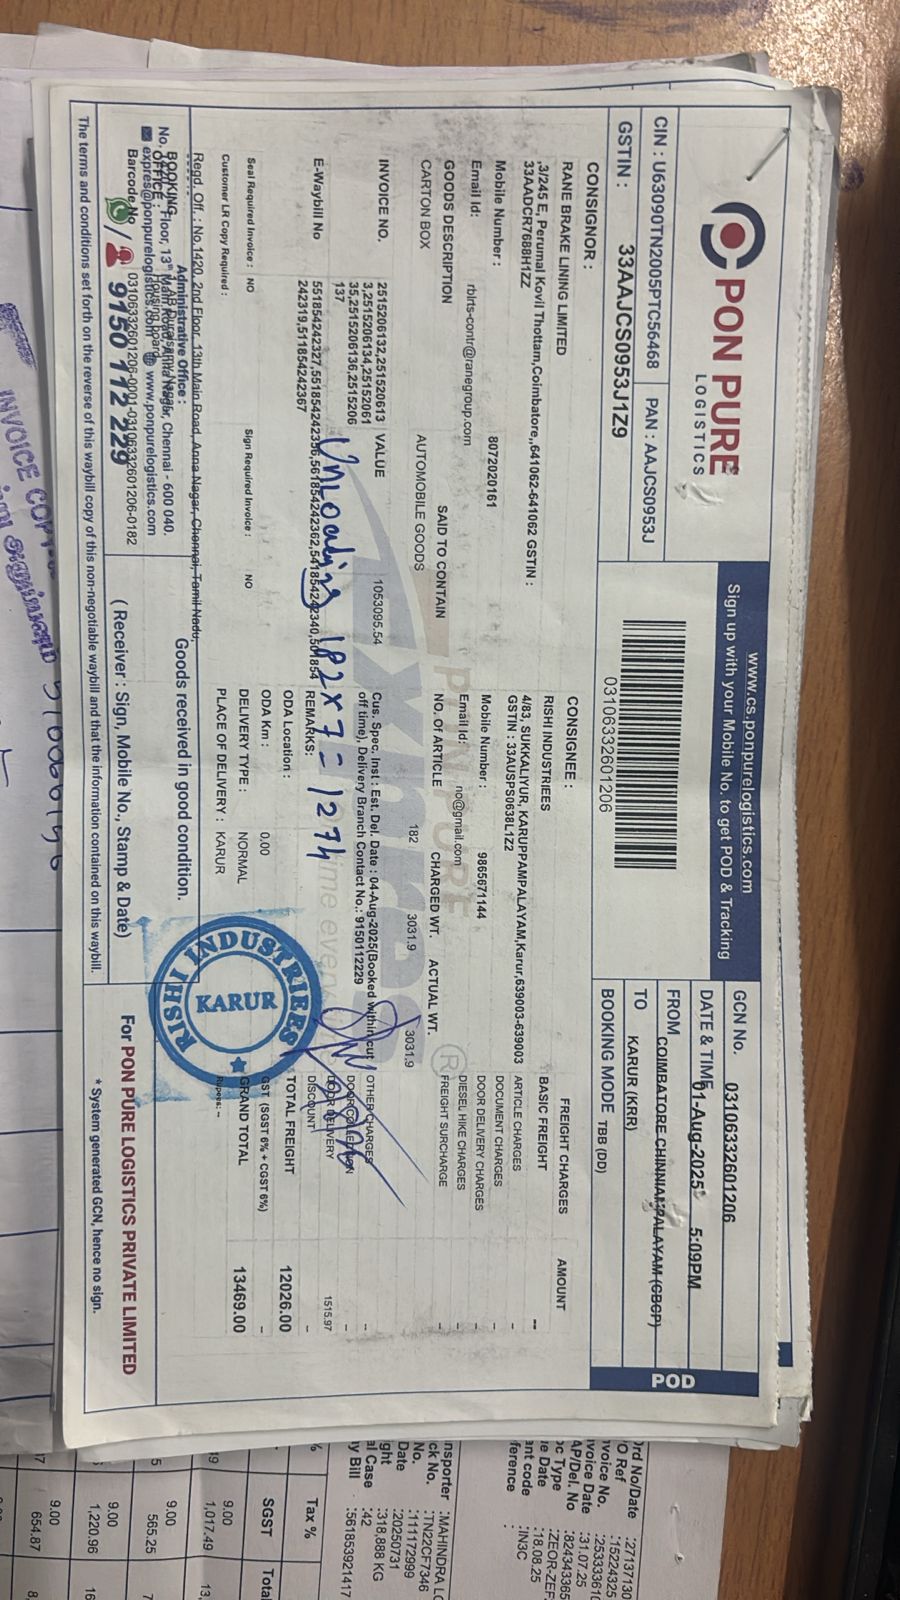 PON PURE
LOGISTICS
CIN : U63090TN2005PTC56468
PAN : AAJCS0953J
GSTIN : 33AAJCS0953J1Z9
www.cs.ponpurelogistics.com
Sign up with your Mobile No. to get POD & Tracking
03106332601206
GCN No. 03106332601206
DATE & TIME 01-Aug-2025 5:09PM
FROM COIMBATORE-CHINNIAMPALAYAM (CBCP)
TO KARUR (KRR)
BOOKING MODE TBB (DD)
POD
CONSIGNOR :
RANE BRAKE LINING LIMITED
,3/245 E, Perumal Kovil Thottam,Coimbatore,,641062-641062 GSTIN :
33AADCR7688H1ZZ
Mobile Number : 8072020161
Email Id: rblrts-contr@ranegroup.com
CONSIGNEE :
RISHI INDUSTRIEES
4/83, SUKKALIYUR, KARUPPAMPALAYAM,Karur,639003-639003
GSTIN : 33AUSPS0638L1Z2
Mobile Number : 9865671144
Email Id: no@gmail.com
GOODS DESCRIPTION SAID TO CONTAIN NO. Of ARTICLE CHARGED WT. ACTUAL WT.
CARTON BOX AUTOMOBILE GOODS 182 3031.9 3031.9
INVOICE NO. 2515206132,251520613
3,2515206134,25152061
35,2515206136,2515206
137
VALUE 1053095.54
Cus. Spec. Inst : Est. Del. Date : 04-Aug-2025(Booked within cut
off time), Delivery Branch Contact No.: 9150112229
E-Waybill No 551854242327,551854242356,561854242362,541854242340,501854
242319,511854242367
REMARKS:
Unloading 182 x 7 = 1274
Seal Required Invoice : NO
Sign Required Invoice : NO
Customer LR Copy Required :
ODA Location :
ODA Km : 0.00
DELIVERY TYPE : NORMAL
PLACE OF DELIVERY : KARUR
FREIGHT CHARGES AMOUNT
BASIC FREIGHT --
ARTICLE CHARGES -
DOCUMENT CHARGES -
DOOR DELIVERY CHARGES -
DIESEL HIKE CHARGES -
FREIGHT SURCHARGE -
OTHER CHARGES -
DOOR COLLECTION -
DOOR DELIVERY 1515.97
DISCOUNT -
TOTAL FREIGHT 12026.00
GST (SGST 6% + CGST 6%) -
GRAND TOTAL 13469.00
Rupees: --
RISHI INDUSTRIEES
KARUR
Regd. Off. : No.1420, 2nd Floor, 13th Main Road, Anna Nagar, Chennai, Tamil Nadu,
Administrative Office :
BOOKING
OFFICE :
Floor, 13th Main Road, Anna Nagar, Chennai - 600 040.
expres@ponpurelogistics.com www.ponpurelogistics.com
Barcode No 03106332601206-0001-03106332601206-0182
9150 112 229
Goods received in good condition.
( Receiver : Sign, Mobile No., Stamp & Date)
For PON PURE LOGISTICS PRIVATE LIMITED
The terms and conditions set forth on the reverse of this waybill copy of this non-negotiable waybill and that the information contained on this waybill.
* System generated GCN, hence no sign.
INVOICE COPY
:27137130
:15224325
:253333610
:31.07.25
:824343365
:ZEOR-ZEF
:18.08.25
:IN3C
nsporter :MAHINDRA LO
ck No. :TN22CF7346
No. :111172999
Date :20250731
ght :318.888 KG
al Case :42
y Bill :561853921417
Tax % SGST Total
9.00
1,017.49
9.00
565.25
9.00
1,220.96
9.00
654.87